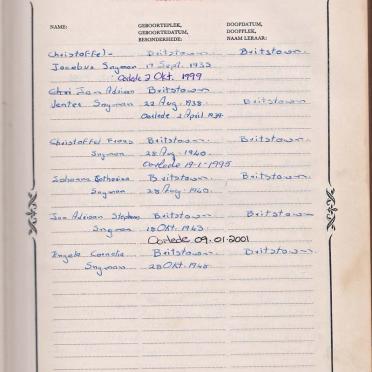 NAAM: GEBOORTEPLEK, DOOPDATUM,
GEBOORTEDATUM, DOOPPLEK,
BESONDERHEDE: NAAM LERAAR:
Christoffel- Britstown Britstown
Jacobus Snyman 17 Sept. 1935
Oorlede 2 Okt. 1999
Jan Adriaan Britstown
Venter Snyman 22 Aug. 1938 Britstown
Oorlede 2 April 1939
Christoffel Frans Britstown Britstown
Snyman 28 Aug. 1940
Oorlede 19-1-1995
Johanna Catharina Britstown Britstown
Snyman 28 Aug. 1940
Jan Adriaan Stephans Britstown Britstown
Snyman 18 Okt. 1943
Oorlede 09.01.2001
Engela Cornelia Britstown Britstown
Snyman 28 Okt. 1948